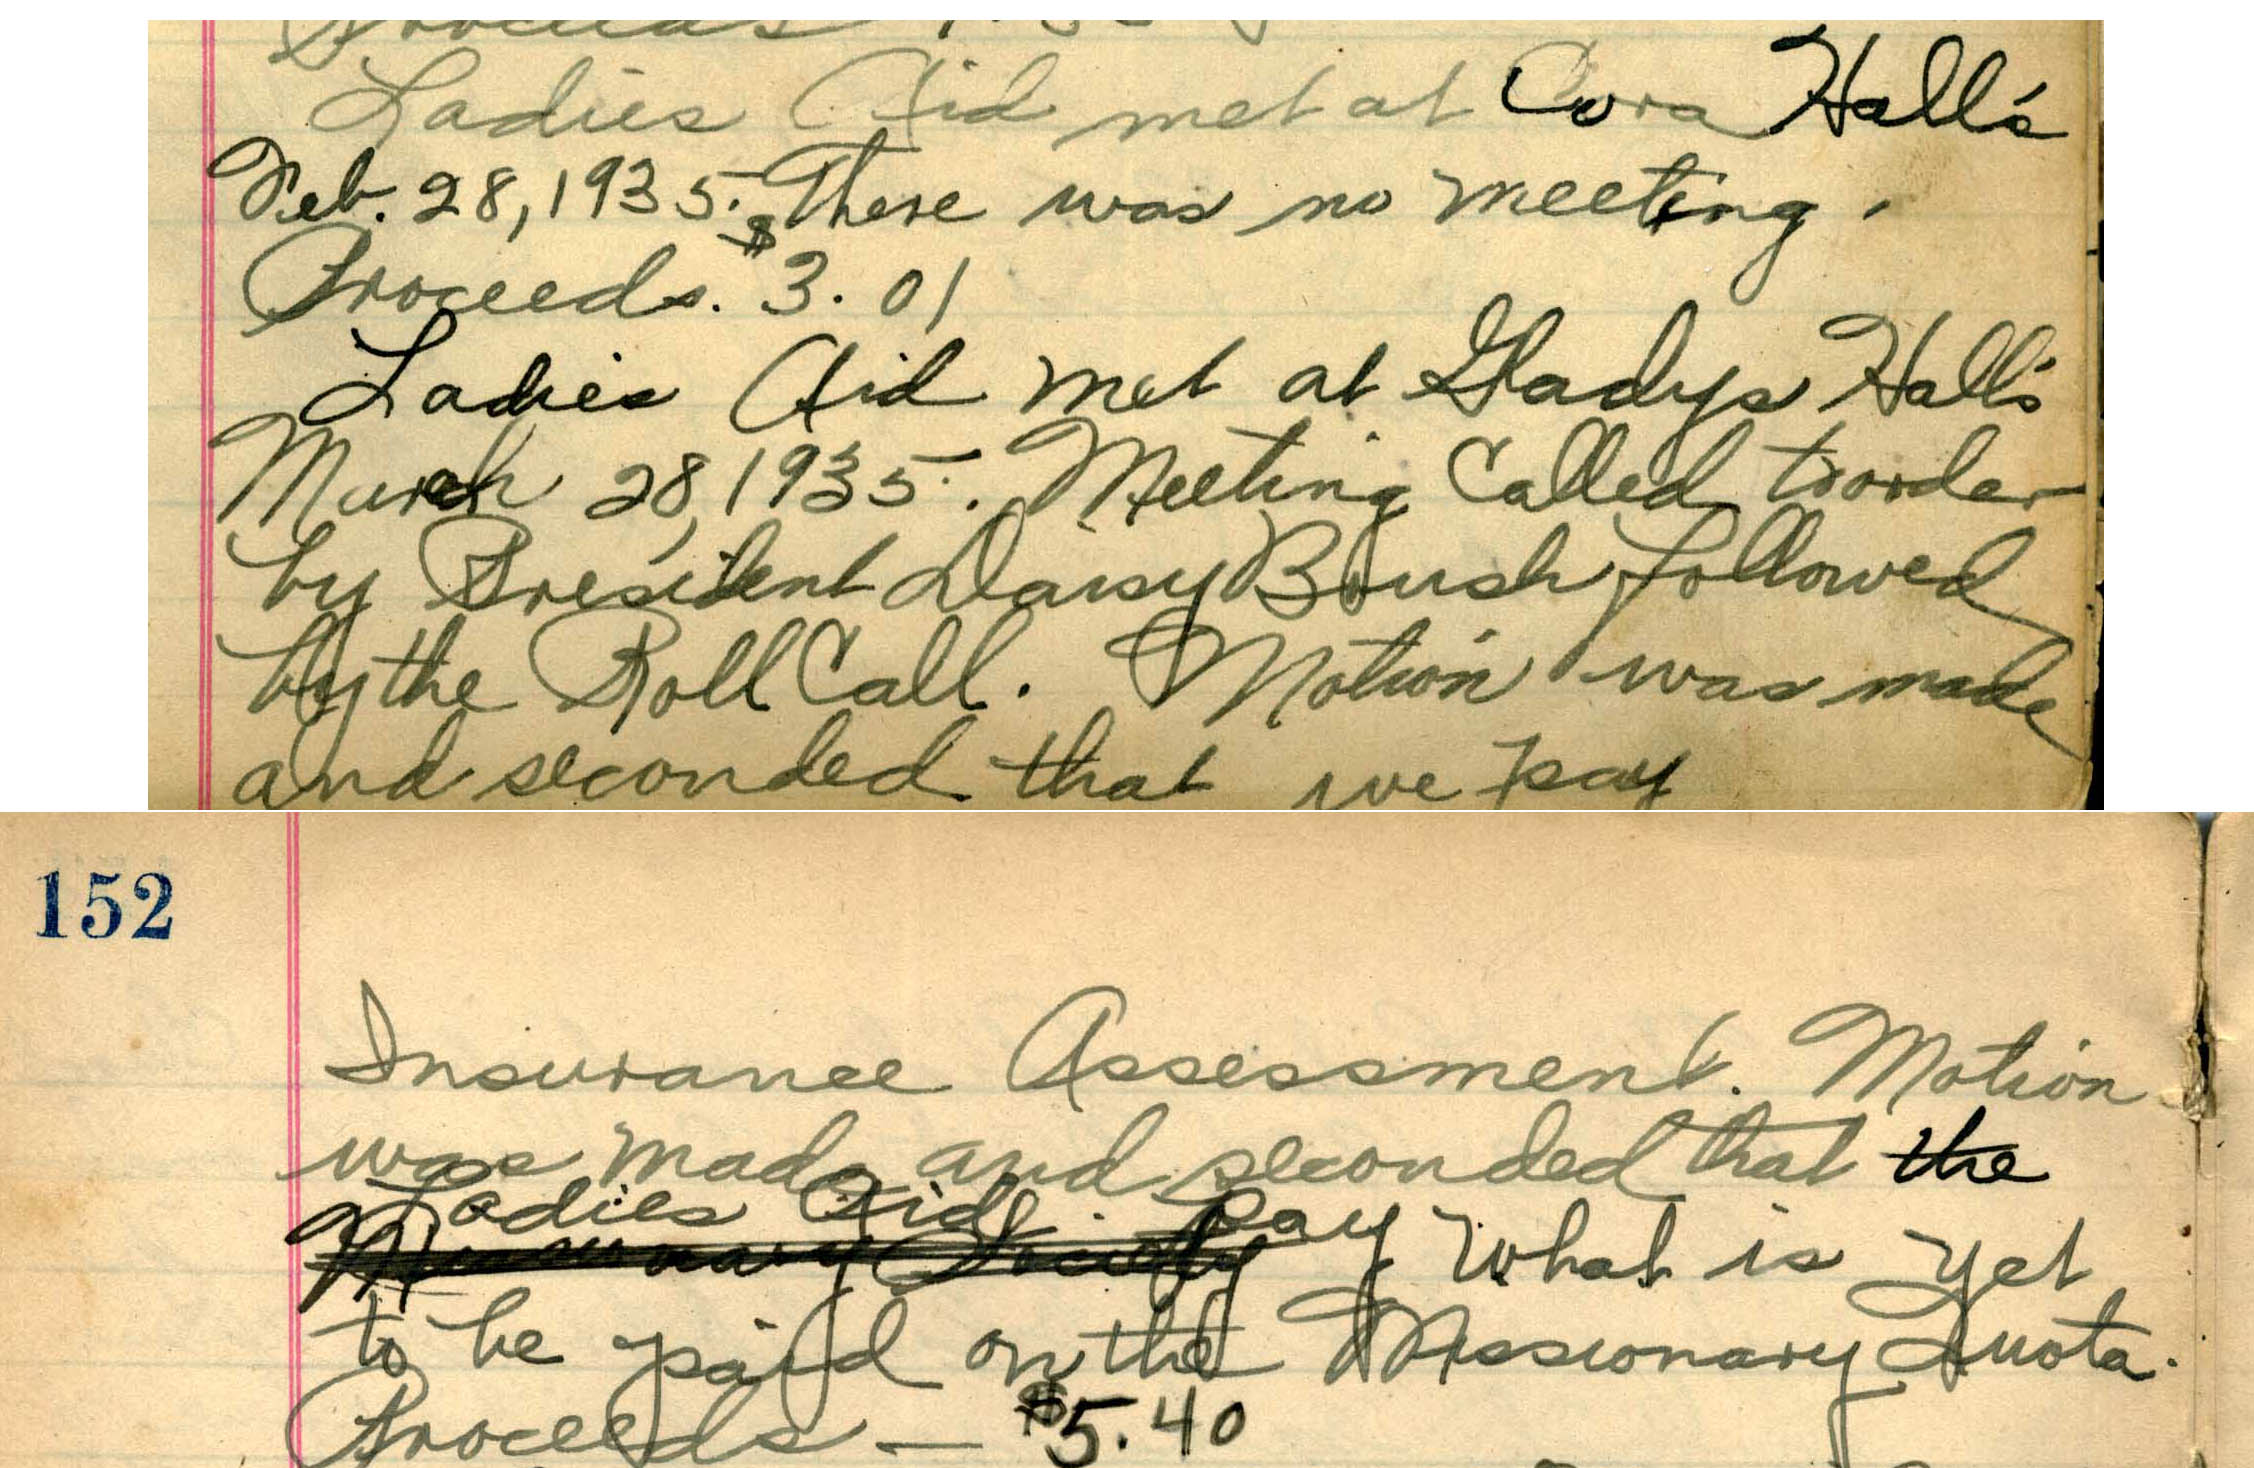 Ladies Aid met at Cora Hall's
Feb. 28, 1935. There was no meeting.
Proceeds. $3.01
Ladies Aid met at Gladys Hall's
March 28, 1935. Meeting Called to order
by President Daisy Brush followed
by the Roll Call. Motion was made
and seconded that we pay
152
Insurance Assessment. Motion
was made and seconded that the
Ladies Aid pay what is yet
Missionary Society
to be paid on the Missionary Quota.
Proceeds — $5.40